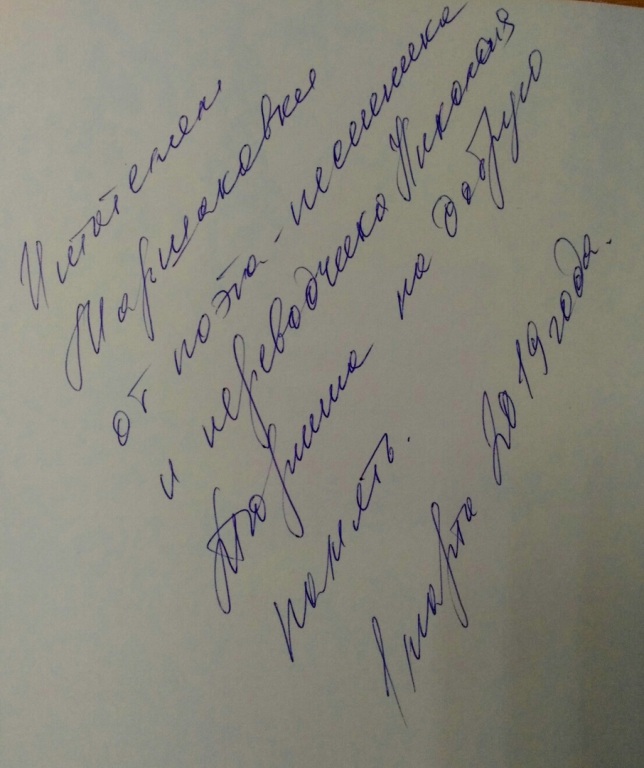 Читателям
Маршаковки
от поэта-песенника
и переводчика Николая
на добрую
память.
1 марта 2019 года.